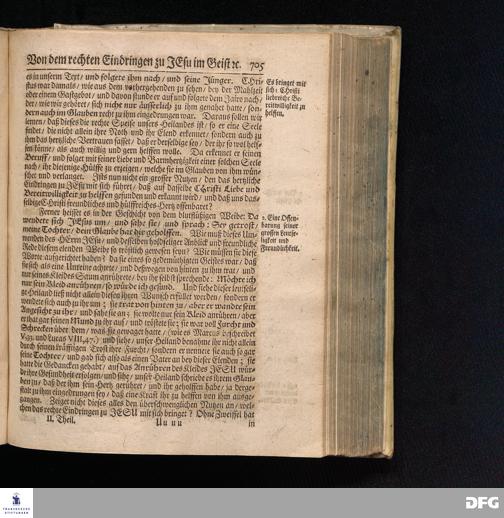 Von dem rechten Eindringen zu JEsu im Geist ꝛc. 705
es in unserm Text/ und folgete ihm nach/ und seine Jünger. CHri-
stus war damals/ wie aus dem vorhergehenden zu sehen/ bey der Mahlzeit
oder einem Gastgebot/ und davon stunde er auf und folgete dem Jairo nach/
der/ wie wir gehöret/ sich nicht nur äusserlich zu ihm genahet hatte/ son-
dern auch im Glauben recht zu ihm eingedrungen war. Daraus sollen wir
lernen/ daß dieses die rechte Speise unsers Heilandes ist/ so er eine Seele
findet/ die nicht allein ihre Noth und ihr Elend erkennet/ sondern auch zu
ihm das hertzliche Vertrauen fasset/ daß er derselbige sey/ der ihr so wol helf-
fen könne/ als auch willig und gern helffen wolle. Da erkennet er seinen
Beruff/ und folget mit seiner Liebe und Barmhertzigkeit einer solchen Seele
nach/ ihr diejenige Hülffe zu erzeigen/ welche sie im Glauben von ihm wün-
schet und verlanget. Ists nun nicht ein grosser Nutzen/ den das hertzliche
Eindringen zu JEsu mit sich führet/ daß auf dasselbe CHristi Liebe und
Bereitwilligkeit zu helffen gefunden und erkannt wird/ und daß uns das-
selbige CHristi freundliches und hülffreiches Hertz offenbaret?
Es bringet mit
sich: 1. Christi
liebreiche Be-
reitwilligkeit zu
helffen,
Ferner heisset es in der Geschicht von dem blutflüßigen Weibe: Da
wendete sich JEsus um/ und sahe sie/ und sprach: Sey getrost/
meine Tochter/ dein Glaube hat dir geholffen. Wie muß dieses Um-
wenden des HErrn JEsu/ und desselben holdseliger Anblick und freundliche
Rede diesem elenden Weibe so tröstlich gewesen seyn? Wie müssen sie diese
Worte aufgerichtet haben? da sie eines so gedemüthigten Geistes war/ daß
sie sich/ als eine Unreine achtete/ und deßwegen von hinten zu ihm trat/ und
nur seines Kleides Saum anrührete/ bey ihr selbst sprechende: Möchte ich
nur sein Kleid anrühren/ so würde ich gesund. Und siehe dieser leutseli-
ge Heiland ließ nicht allein diesen ihren Wunsch erfüllet werden/ sondern er
wendete sich auch zu ihr um; sie trat von hinten zu/ aber er wandte sein
Angesicht zu ihr/ und sahe sie an; sie wolte nur sein Kleid anrühren/ aber
er that gar seinen Mund zu ihr auf/ und tröstete sie; sie war voll Furcht und
Schrecken über dem/ was sie gewaget hatte/ (wie es Marcus beschreibet
V, 33. und Lucas VIII, 47.) und siehe/ unser Heiland benahme ihr nicht allein
durch seinen kräfftigen Trost ihre Furcht/ sondern er nennete sie auch so gar
seine Tochter/ und gab sich also als einen Vater an bey dieser Elenden; sie
hatte die Gedancken gehabt/ auf das Anrühren des Kleides JESU wür-
de ihre Gesundheit erfolgen/ und siehe/ unser Heiland schriebe es ihrem Glau-
ben zu/ daß der ihm sein Hertz gerühret/ und ihr geholffen habe/ ja derge-
stalt zu ihm eingedrungen sey/ daß eine Krafft ihr zu helffen von ihm ausge-
gangen. Zeiget nicht dieses alles den überschwenglichen Nutzen an/ wel-
chen das rechte Eindringen zu JESU mit sich bringet? Ohne Zweiffel hat
2. Eine Offen-
barung seiner
grossen Leutse-
ligkeit und
Freundlichkeit.
II. Theil. Uu uu in
FRANCKESCHE
STIFTUNGEN
DFG